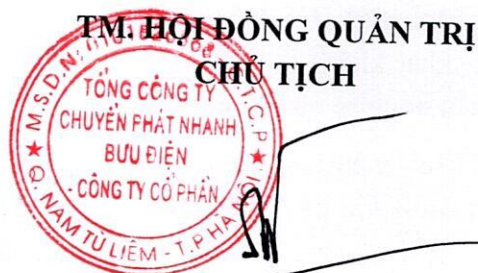 TM. HỘI ĐỒNG QUẢN TRỊ
CHỦ TỊCH
TỔNG CÔNG TY
CHUYỂN PHÁT NHANH
BƯU ĐIỆN
- CÔNG TY CỔ PHẦN
M.S.D.N:
T.C.P
Q. NAM TỪ LIÊM - T.P HÀ NỘI